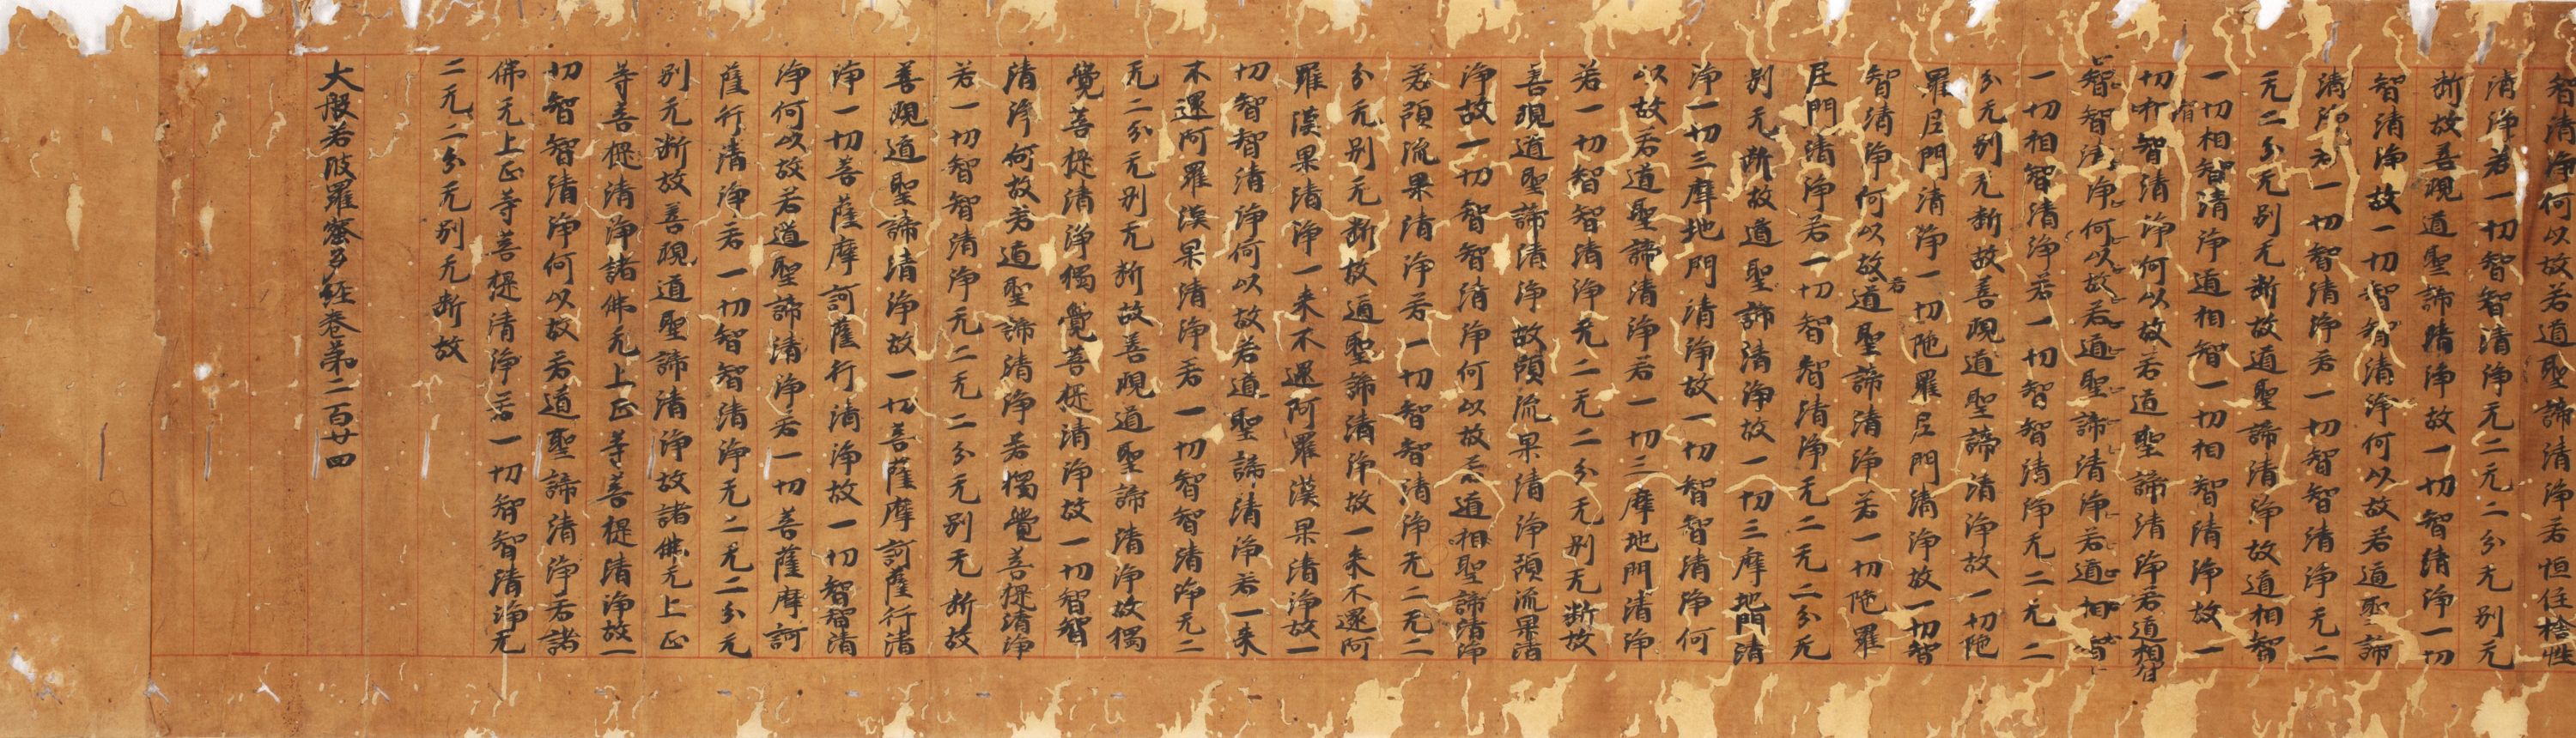 智清淨何以故若道聖諦清淨若恒住捨性
清淨若一切智智清淨无二无二分无別无
断故善現道聖諦清淨故一切智清淨一切
智清淨故一切智智清淨何以故若道聖諦
清淨若一切智清淨若一切智智清淨无二
无二分无別无断故道聖諦清淨故道相智
一切相智清淨道相智一切相智清淨故一
切智智清淨何以故若道聖諦清淨若道相智
智智清淨何以故若道聖諦清淨若道相
一切相智清淨若一切智智清淨无二无二
分无別无断故善現道聖諦清淨故一切陁
羅尼門清淨一切陁羅尼門清淨故一切智
智清淨何以故若道聖諦清淨若一切陁羅
尼門清淨若一切智智清淨无二无二分无
別无断故道聖諦清淨故一切三摩地門清
淨一切三摩地門清淨故一切智智清淨何
以故若道聖諦清淨若一切三摩地門清淨
若一切智智清淨无二无二分无別无断故
善現道聖諦清淨故預流果清淨預流果清
淨故一切智智清淨何以故若道相聖諦清淨
若預流果清淨若一切智智清淨无二无二
分无別无断故道聖諦清淨故一来不還阿
羅漢果清淨一来不還阿羅漢果清淨故一
切智智清淨何以故若道聖諦清淨若一来
不還阿羅漢果清淨若一切智智清淨无二
无二分无別无断故善現道聖諦清淨故獨
覺菩提清淨獨覺菩提清淨故一切智智
清淨何故若道聖諦清淨若獨覺菩提清淨
若一切智智清淨无二无二分无別无断故
善現道聖諦清淨故一切菩薩摩訶薩行清
淨一切菩薩摩訶薩行清淨故一切智智清
淨何以故若道聖諦清淨若一切菩薩摩訶
薩行清淨若一切智智清淨无二无二分无
別无断故善現道聖諦清淨故諸佛无上正
等菩提清淨諸佛无上正等菩提清淨故一
切智智清淨何以故若道聖諦清淨若諸
佛无上正等菩提清淨若一切智智清淨无
二无二分无別无断故
大般若波羅蜜多経卷苐二百廿四